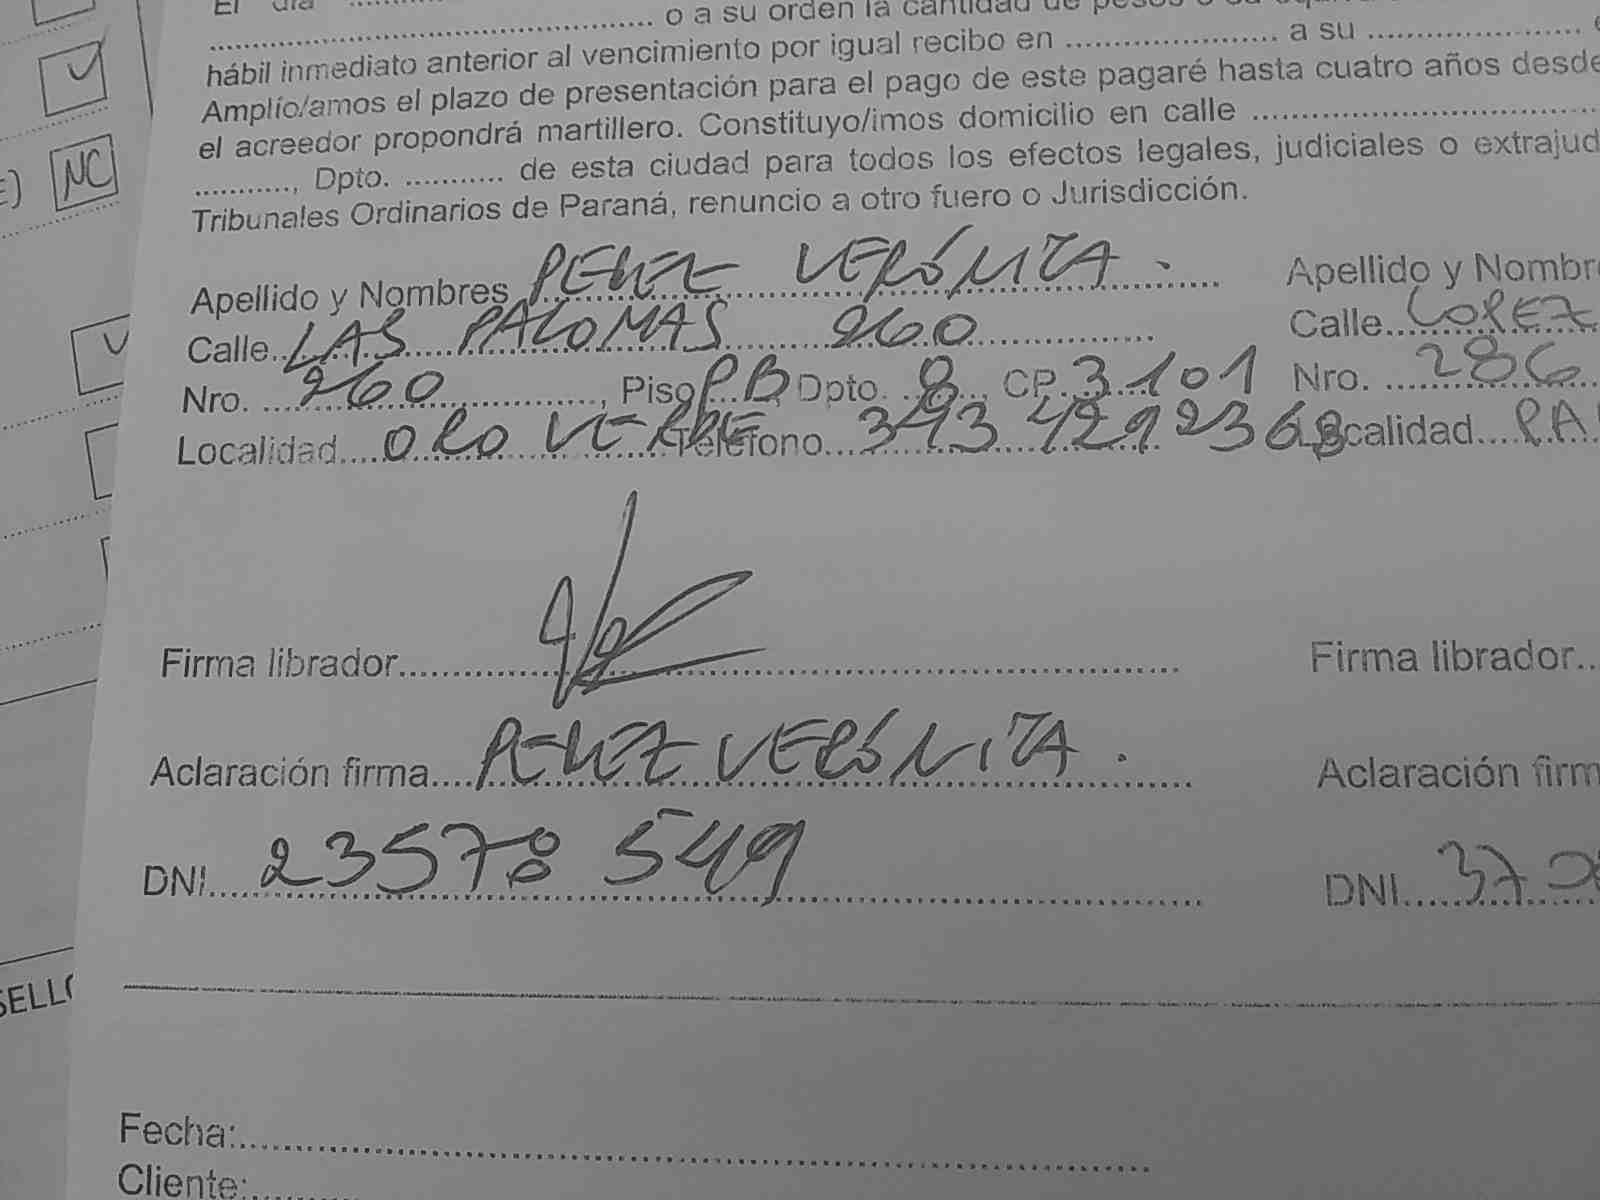 El día ..........
.......... o a su orden la cantidad de pesos o su
hábil inmediato anterior al vencimiento por igual recibo en .......... a su ..........
Amplío/amos el plazo de presentación para el pago de este pagaré hasta cuatro años desde
el acreedor propondrá martillero. Constituyo/imos domicilio en calle ..........
..........., Dpto. ........... de esta ciudad para todos los efectos legales, judiciales o extrajud
Tribunales Ordinarios de Paraná, renuncio a otro fuero o Jurisdicción.
NC
Apellido y Nombres PEREZ VERÓNICA. Apellido y Nombre
Calle LAS PALOMAS 260 Calle LOPEZ
Nro. 260, Piso PB, Dpto. 8 CP. 3101 Nro. 286
Localidad ORO VERDE Teléfono 343 4292368 Localidad PA
Firma librador.......... Firma librador..
Aclaración firma PEREZ VERÓNICA. Aclaración firm
DNI 23578 549 DNI 37
SELLO
Fecha:..........
Cliente:..........